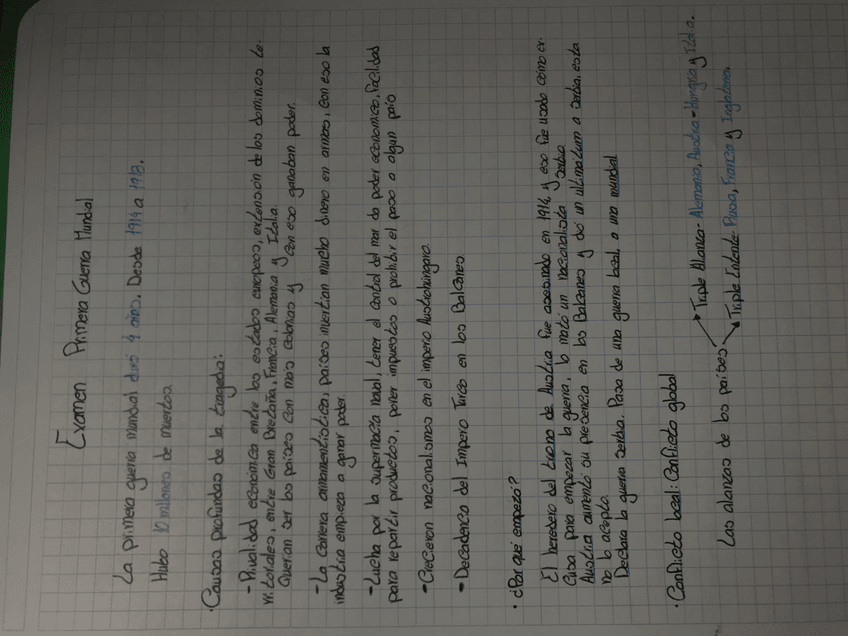 Examen Primera Guerra Mundial
La primera guerra mundial duró 4 años. Desde 1914 a 1918.
Hubo 10 millones de muertos
· Causas profundas de la tragedia:
- Rivalidad económica entre los estados europeos, extensión de los dominios te-
rritoriales, entre Gran Bretaña, Francia, Alemania y Italia.
Querian ser los países con mas colonias y con eso ganaban poder.
- La carrera armamentística, países invertian mucho dinero en armas, con eso la
industria empieza a ganar poder.
- Lucha por la supermacía naval, tener el control del mar da poder económico, facilidad
para repartir productos, poner impuestos o prohibir el paso a algun país
- Crecieron nacionalismos en el imperio Austrohúngaro.
- Decadencia del Impero Turco en los Balcanes
· ¿Por qué empezó?
El heredero del trono de Austria fue asesinado en 1914, y eso fue usado como ex-
cusa para empezar la guerra, lo mató un nacionalista Serbio
Austria aumentó su presencia en los Balcanes y dió un ultimatum a Serbia, esta
no lo acepto.
Declara la guerra Serbia. Pasa de una guerra local, a una mundial
· Conflicto local: Conflicto global
Las alianzas de los países
Triple Alianza- Alemania, Austria-Hungria y Italia.
Triple Entente- Rusia, Francia y Inglaterra.